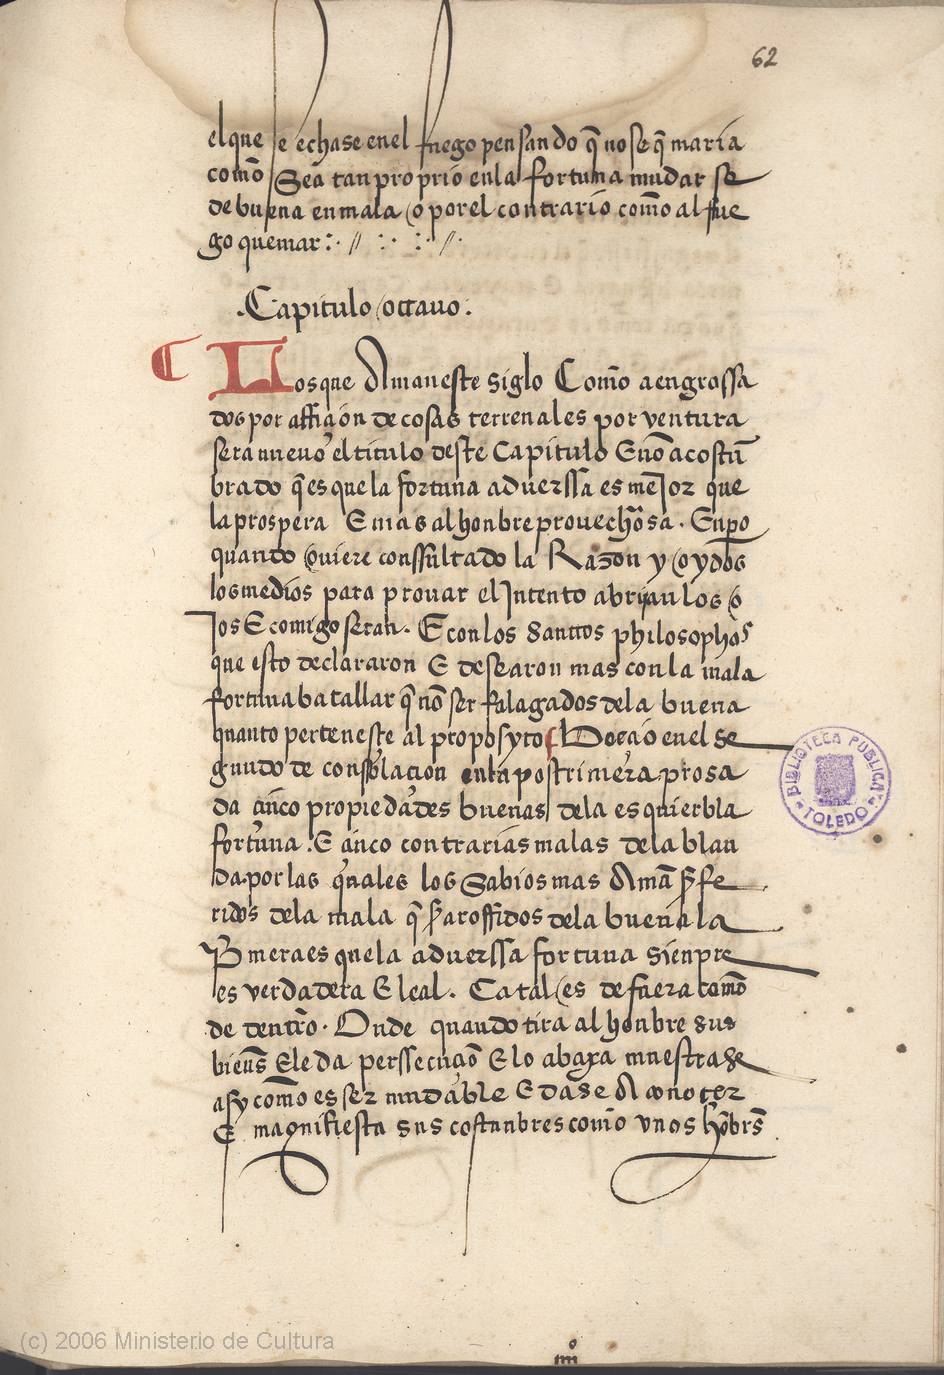 62
el que se echase en el fuego pensando q̃ no se q̃maria
como Sea tan proprio en la fortuna mudar se
de buena en mala o por el contrario como al fue
go quemar
Capitulo octauo.
Los que Aman este siglo Como a engrossa
dos por affiçion de cosas terrenales por ventura
sera nueuo el titulo deste Capitulo E nõ acostũ
brado q̃ es que la fortuna aduerssa es meJor que
la prospera E mas al honbre prouechosa. Enpõ
quando ouiere conssultado la Razon y oydos
los medios para prouar el Intento abriran los o
Jos E comigo seran. E con los sanctos philosophos
que esto declararon E desearon mas con la mala
fortuna batallar q̃ nõ ser falagados de la buena
quanto perteneste al proposyto Boeçio en el se
gundo de conssolacion en la postrimera prosa
da çinco propiedades buenas de la esquierbla
fortuna. E çinco contrarias malas de la blan
da. por las quales los Sabios mas Amã
ridos de la mala q̃ de la buena la
Pmera es que la aduerssa fortuna sienpre
es verdadera E leal. Ca tal es de fuera como
de dentro. Onde quando tira al honbre sus
bienes E le da perssecuçiõ E lo abaxa muestrase
asy como es ser mudable E dase A conoçer
E magnifiesta sus costunbres como vnos hõbrs̃
BIBLIOTECA PUBLICA
TOLEDO
(c) 2006 Ministerio de Cultura